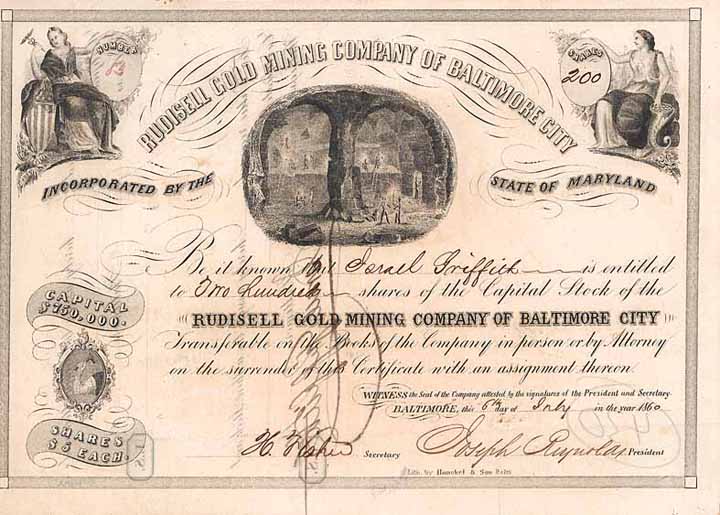 NUMBER
2
SHARES
200
RUDISELL GOLD MINING COMPANY OF BALTIMORE CITY
INCORPORATED BY THE
STATE OF MARYLAND
Be it known that Israel Griffith is entitled
to Two Hundred shares of the Capital Stock of the
RUDISELL GOLD MINING COMPANY OF BALTIMORE CITY
Transferable on the Books of the Company in person or by Attorney
on the surrender of this Certificate with an assignment thereon.
CAPITAL
$750,000.
SHARES
$5 EACH.
WITNESS the Seal of the Company attested by the signatures of the President and Secretary.
BALTIMORE, this 6th day of July in the year 1860
H. Fisher Secretary Joseph Reynolds President
Lith. by Hanckel & Son Balto